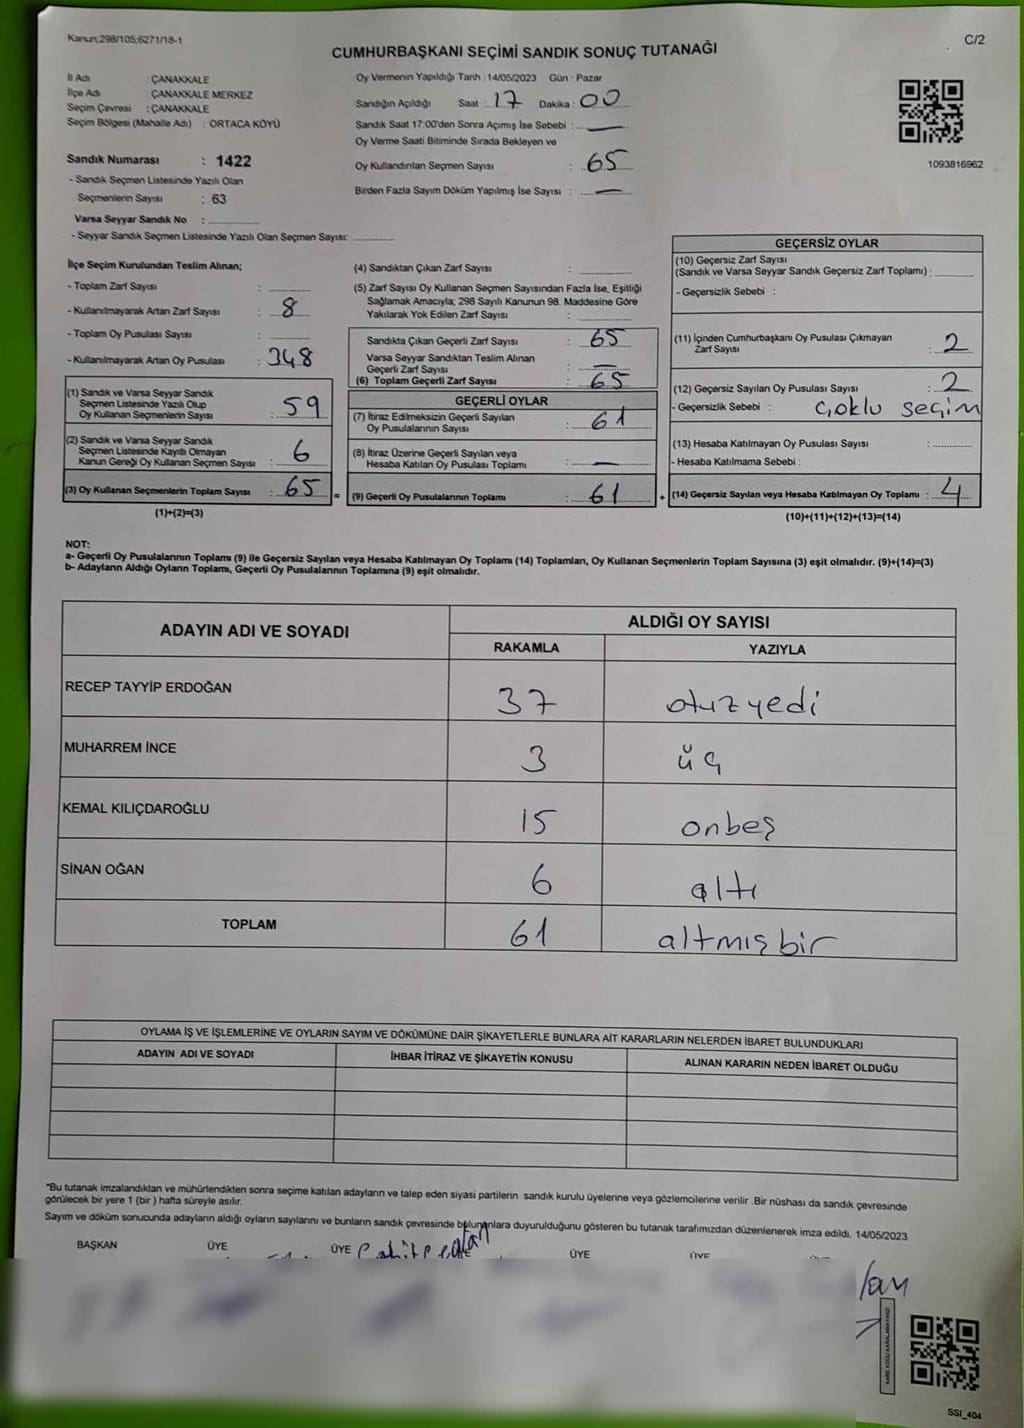 Kanun;298/105;6271/18-1
C/2
CUMHURBAŞKANI SEÇİMİ SANDIK SONUÇ TUTANAĞI
İl Adı : ÇANAKKALE
İlçe Adı : ÇANAKKALE MERKEZ
Seçim Çevresi : ÇANAKKALE
Seçim Bölgesi (Mahalle Adı) : ORTACA KÖYÜ
Sandık Numarası : 1422
- Sandık Seçmen Listesinde Yazılı Olan
Seçmenlerin Sayısı : 63
Varsa Seyyar Sandık No : ..............
- Seyyar Sandık Seçmen Listesinde Yazılı Olan Seçmen Sayısı: ............
Oy Vermenin Yapıldığı Tarih : 14/05/2023 Gün : Pazar
Sandığın Açıldığı Saat : 17 Dakika : 00
Sandık Saat 17:00'den Sonra Açımış İse Sebebi : —
Oy Verme Saati Bitiminde Sırada Bekleyen ve
Oy Kullandırılan Seçmen Sayısı : 65
Birden Fazla Sayım Döküm Yapılmış İse Sayısı : —
1093816962
İlçe Seçim Kurulundan Teslim Alınan;
- Toplam Zarf Sayısı : ............
- Kullanılmayarak Artan Zarf Sayısı : 8
- Toplam Oy Pusulası Sayısı : ............
- Kullanılmayarak Artan Oy Pusulası : 348
(1) Sandık ve Varsa Seyyar Sandık
Seçmen Listesinde Yazılı Olup
Oy Kullanan Seçmenlerin Sayısı : 59
(2) Sandık ve Varsa Seyyar Sandık
Seçmen Listesinde Kayıtlı Olmayan
Kanun Gereği Oy Kullanan Seçmen Sayısı : 6
(3) Oy Kullanan Seçmenlerin Toplam Sayısı : 65 =
(1)+(2)=(3)
(4) Sandıktan Çıkan Zarf Sayısı : ............
(5) Zarf Sayısı Oy Kullanan Seçmen Sayısından Fazla İse, Eşitliği
Sağlamak Amacıyla; 298 Sayılı Kanunun 98. Maddesine Göre
Yakılarak Yok Edilen Zarf Sayısı : ............
Sandıkta Çıkan Geçerli Zarf Sayısı : 65
Varsa Seyyar Sandıktan Teslim Alınan
Geçerli Zarf Sayısı : —
(6) Toplam Geçerli Zarf Sayısı : 65
GEÇERLİ OYLAR
(7) İtiraz Edilmeksizin Geçerli Sayılan
Oy Pusulalarının Sayısı : 61
(8) İtiraz Üzerine Geçerli Sayılan veya
Hesaba Katılan Oy Pusulası Toplamı : —
(9) Geçerli Oy Pusulalarının Toplamı : 61 +
GEÇERSİZ OYLAR
(10) Geçersiz Zarf Sayısı
(Sandık ve Varsa Seyyar Sandık Geçersiz Zarf Toplamı) : ............
- Geçersizlik Sebebi :
(11) İçinden Cumhurbaşkanı Oy Pusulası Çıkmayan
Zarf Sayısı : 2
(12) Geçersiz Sayılan Oy Pusulası Sayısı : 2
- Geçersizlik Sebebi : Çoklu seçim
(13) Hesaba Katılmayan Oy Pusulası Sayısı : ............
- Hesaba Katılmama Sebebi :
(14) Geçersiz Sayılan veya Hesaba Katılmayan Oy Toplamı : 4
(10)+(11)+(12)+(13)=(14)
NOT:
a- Geçerli Oy Pusulalarının Toplamı (9) ile Geçersiz Sayılan veya Hesaba Katılmayan Oy Toplamı (14) Toplamları, Oy Kullanan Seçmenlerin Toplam Sayısına (3) eşit olmalıdır. (9)+(14)=(3)
b- Adayların Aldığı Oyların Toplamı, Geçerli Oy Pusulalarının Toplamına (9) eşit olmalıdır.
ADAYIN ADI VE SOYADI
ALDIĞI OY SAYISI
RAKAMLA YAZIYLA
RECEP TAYYİP ERDOĞAN 37 otuzyedi
MUHARREM İNCE 3 üç
KEMAL KILIÇDAROĞLU 15 onbeş
SİNAN OĞAN 6 altı
TOPLAM 61 altmışbir
OYLAMA İŞ VE İŞLEMLERİNE VE OYLARIN SAYIM VE DÖKÜMÜNE DAİR ŞİKAYETLERLE BUNLARA AİT KARARLARIN NELERDEN İBARET BULUNDUKLARI
ADAYIN ADI VE SOYADI İHBAR İTİRAZ VE ŞİKAYETİN KONUSU ALINAN KARARIN NEDEN İBARET OLDUĞU
"Bu tutanak imzalandıktan ve mühürlendikten sonra seçime katılan adayların ve talep eden siyasi partilerin sandık kurulu üyelerine veya gözlemcilerine verilir .Bir nüshası da sandık çevresinde
görülecek bir yere 1 (bir ) hafta süreyle asılır.
Sayım ve döküm sonucunda adayların aldığı oyların sayılarını ve bunların sandık çevresinde bulunanlara duyurulduğunu gösteren bu tutanak tarafımızdan düzenlenerek imza edildi. 14/05/2023
BAŞKAN ÜYE ÜYE ÜYE ÜYE
SSI_404